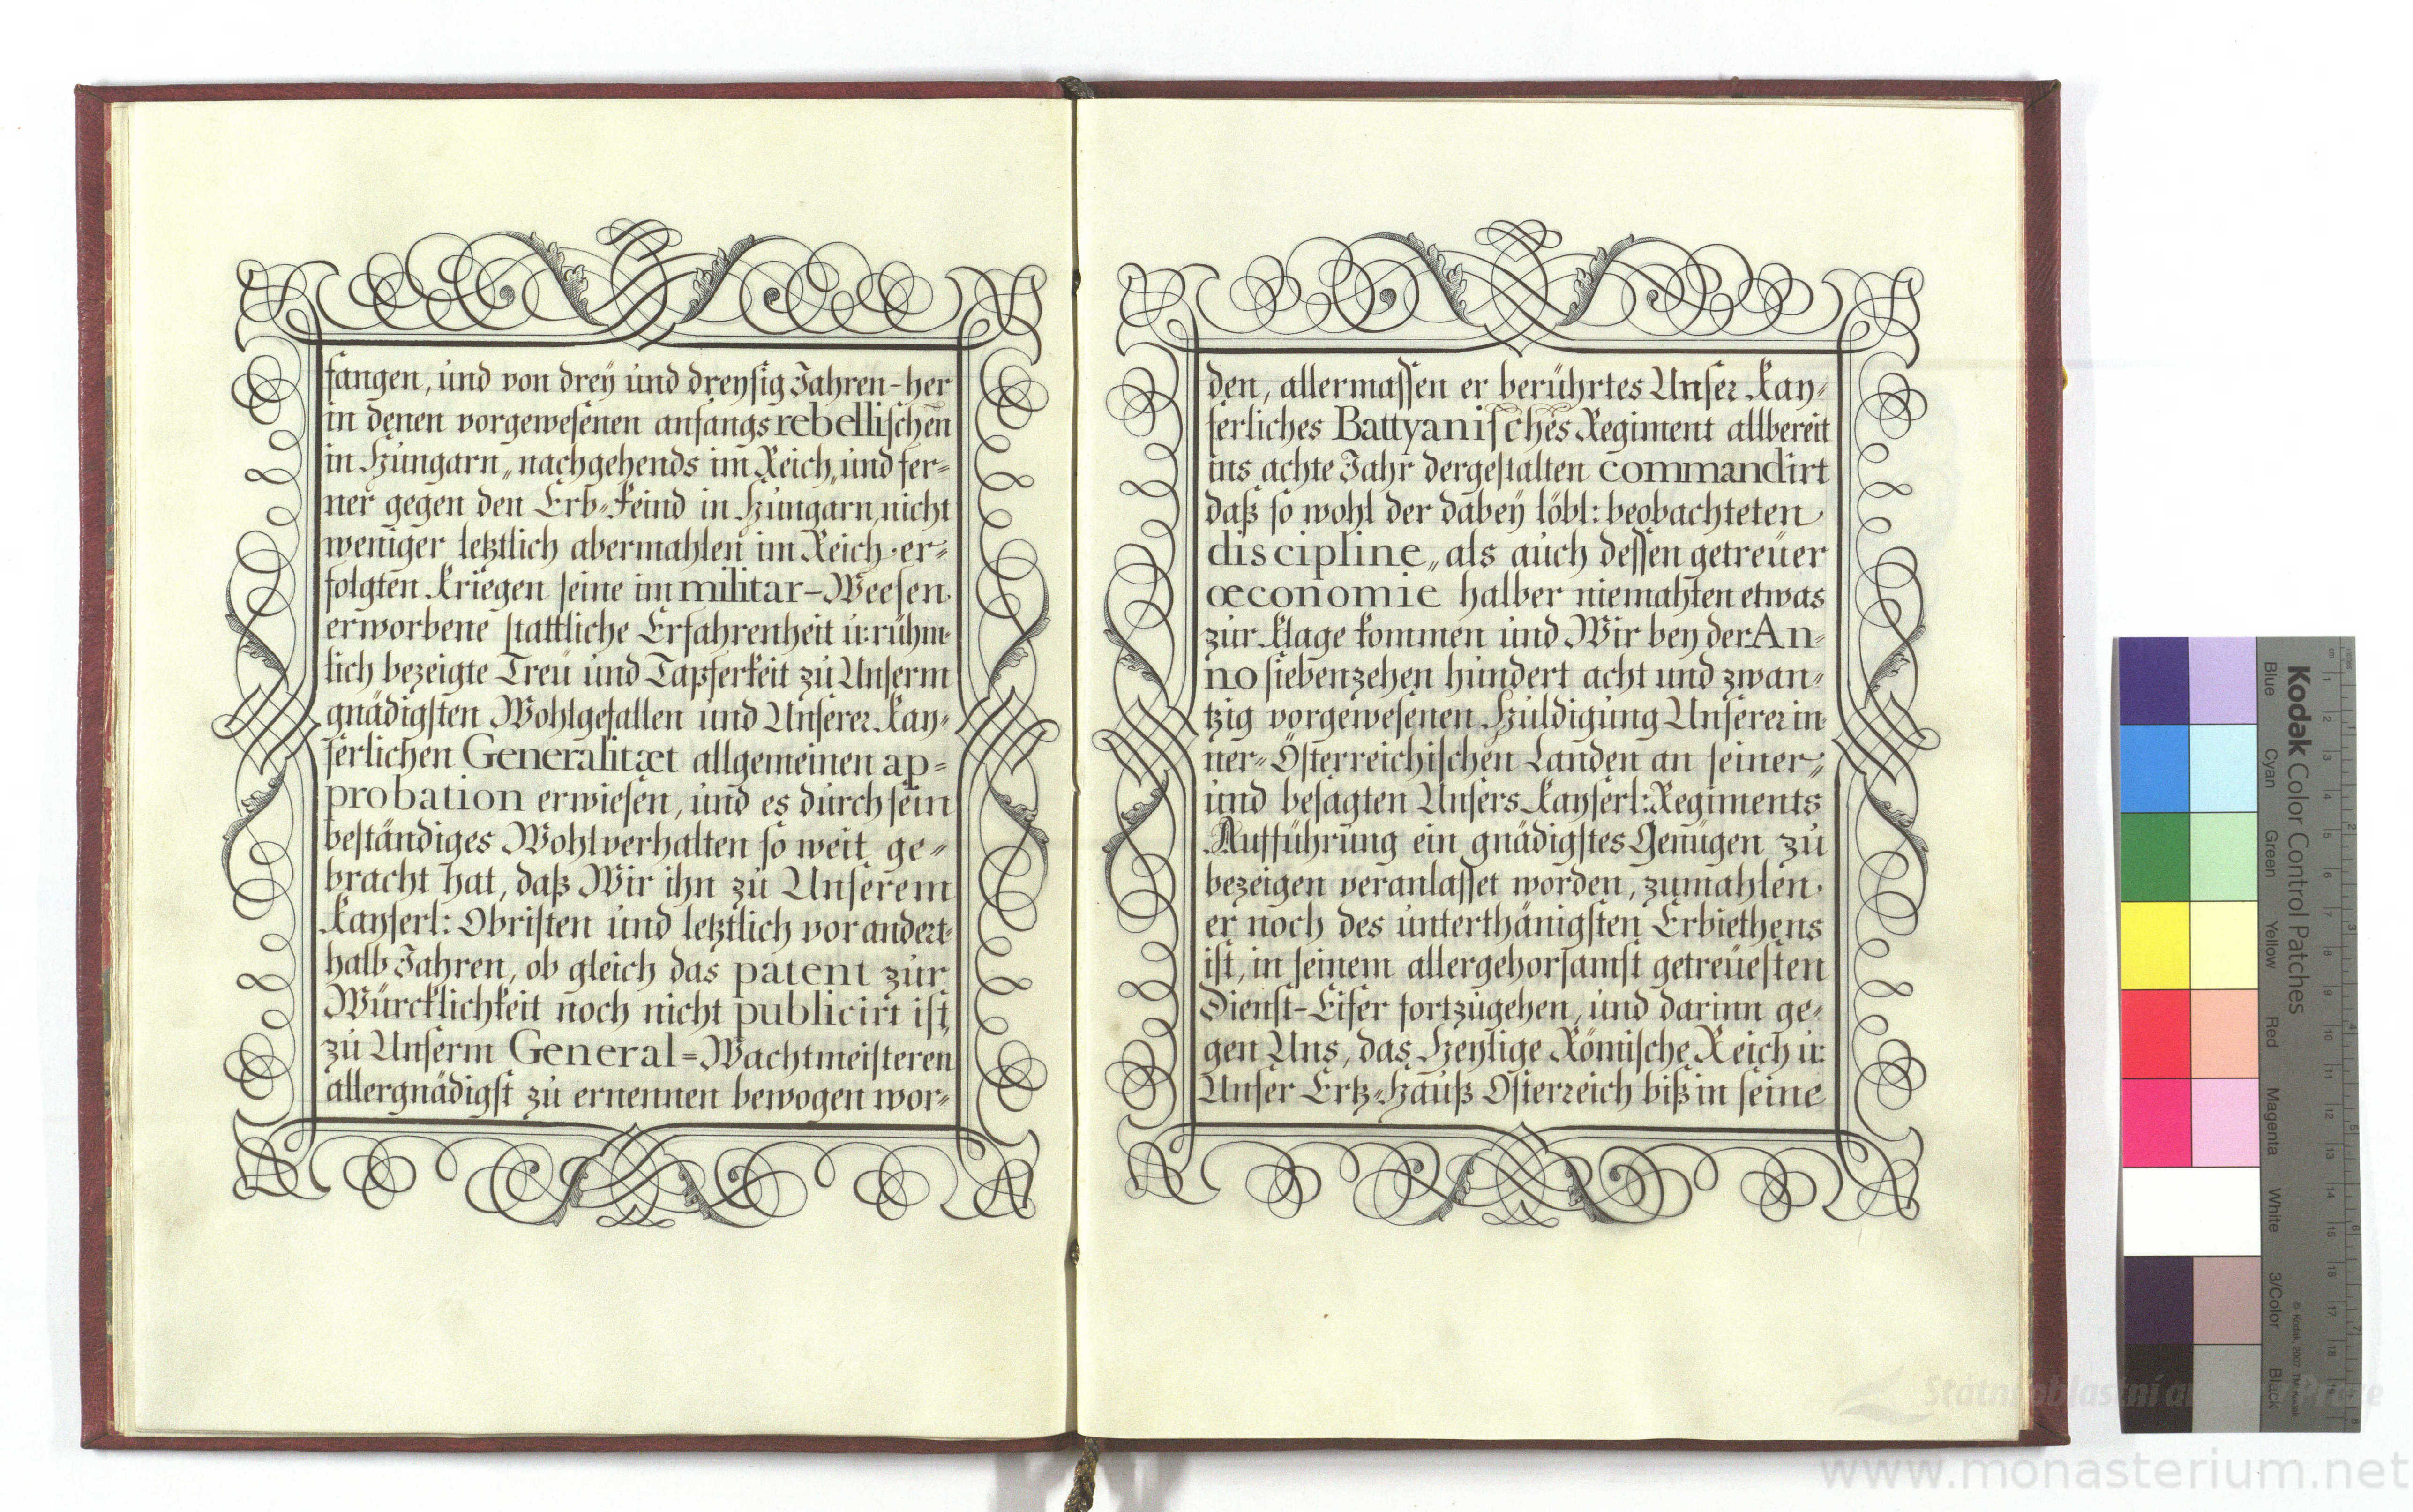 fangen, und von drey und dreysig Jahren-her
in denen vorgewesenen anfangs rebellischen
in Hungarn„ nachgehends im Reich„ und fer=
ner gegen den Erb=Feind in Hungarn, nicht
weniger letztlich abermahlen im Reich er=
folgten Kriegen seine im militar-Weesen
erworbene stattliche Erfahrenheit u: rühm=
lich bezeigte Treu und Tapferkeit zu Unserm
gnädigsten Wohlgefallen und Unserer Kay=
serlichen Generalitæt allgemeinen ap=
probation erwiesen, und es durch sein
beständiges Wohlverhalten so weit ge=
bracht hat, daß Wir ihn zu Unserem
Kayserl: Obristen und letztlich vor andert=
halb Jahren, ob gleich das patent zur
Würcklichkeit noch nicht publicirt ist,
zu Unserm General=Wachtmeisteren
allergnädigst zu ernennen bewogen wor=
den, allermassen er berührtes Unser Kay=
serliches Battyanisches Regiment allbereit
ins achte Jahr dergestalten commandirt
daß so wohl der dabey löbl: beobachteten
discipline„ als auch dessen getreuer
œconomie halber niemahlen etwas
zur Klage kommen und Wir bey der An=
no siebenzehen hundert acht und zwan=
tzig vorgewesenen Huldigung Unserer in=
ner=Österreichischen Landen an seiner=
und besagten Unsers Kayserl: Regiments
Aufführung ein gnädigstes Genügen zu
bezeigen veranlasset worden, zumahlen
er noch des unterthänigsten Erbiethens
ist, in seinem allergehorsamst getreuesten
Dienst-Eifer fortzugehen, und darinn ge=
gen Uns, das Heylige Römische Reich u:
Unser Ertz=Hauß Österreich biß in seine
Kodak Color Control Patches
Blue Cyan Green Yellow Red Magenta White 3/Color Black
© Kodak, 2007
Státní oblastní
www.monasterium.net